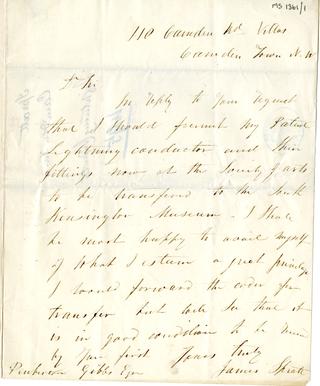 MS 1361/1
110 Camden Rd Villas
Camden Town N.W
Dr Sir
In reply to your request
that I should permit my Patent
Lightning conductor and their
fittings now at the Society of arts
to be transferred to the South
Kensington Museum - I shall
be most happy to avail myself
of what I esteem a great privilege
I would forward the order for
transfer but will see that it
is in good condition to be seen
by you first Yours truly
James Spratt